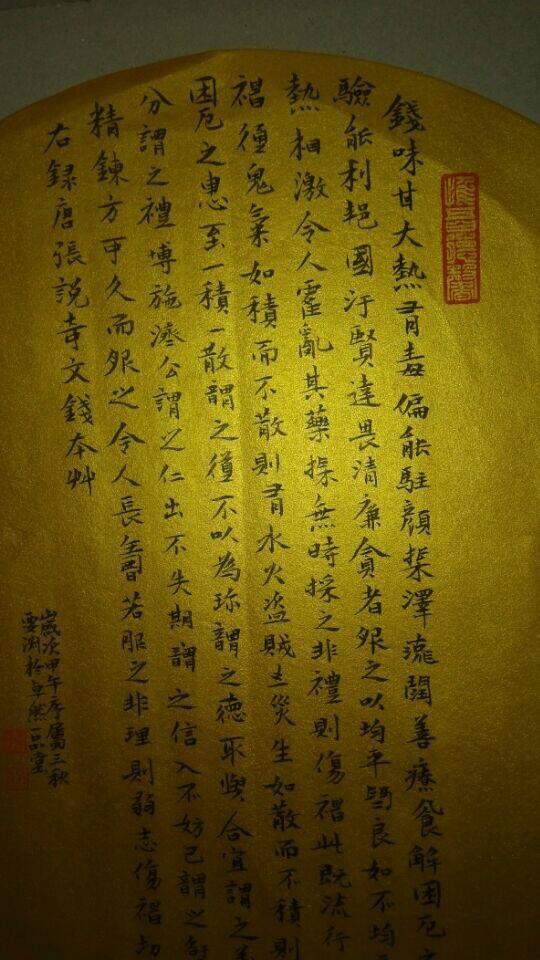 錢味甘大熱有毒偏能駐顏采澤流潤善療飢解困厄
驗能利邦國汙賢達畏清廉貪者服之以均平為良如不均
熱相激令人霍亂其藥採無時採之非禮則傷神此既流行
神通鬼氣如積而不散則有水火盜賊之災生如散而不積則
困厄之患至一積一散謂之道不以為珍謂之德取與合宜謂之義
分謂之禮博施濟众謂之仁出不失期謂之信入不妨己謂之智
精鍊方可久而服之令人長壽若服之非理則弱志傷神切
右錄唐張說奇文錢本艸
歲次甲午序屬三秋
要淵於卓然一品堂